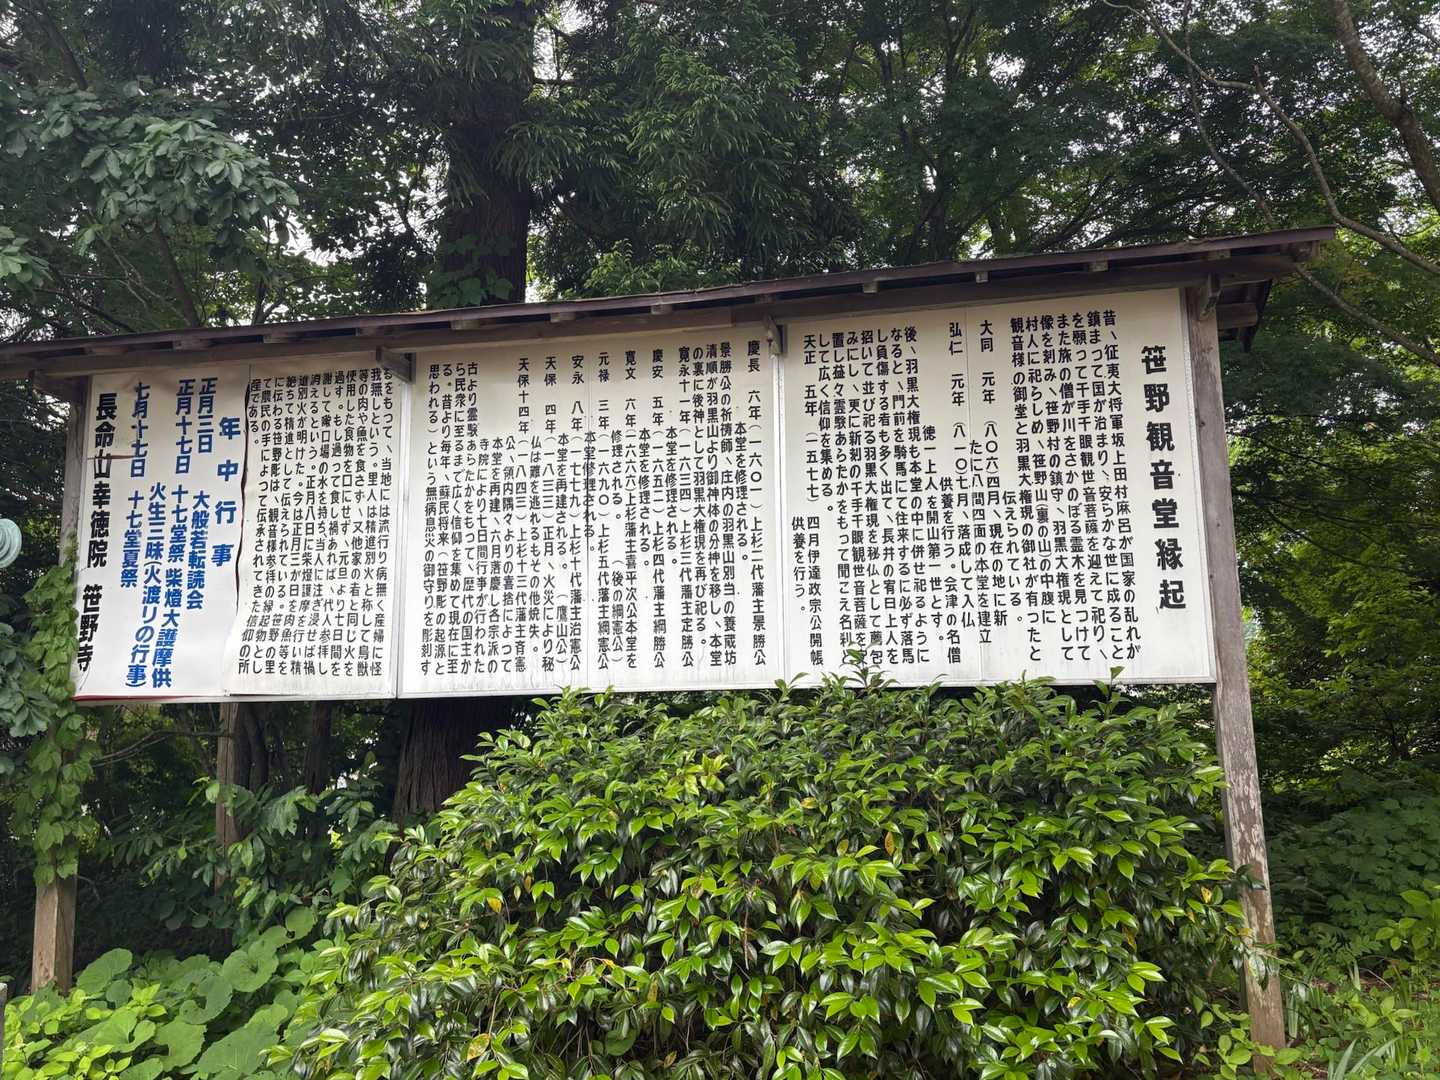 笹野観音堂縁起
昔、征東大将軍坂上田村麻呂が国家の乱れが
鎮まって国が治まり、安らかな世に成ること
を願って千手千眼観世音菩薩を迎えて祀り、
また旅の僧が川をさかのぼる霊木を見つけて
像を刻み、笹野村の鎮守、羽黒大権現として
村人に祀らしめ、笹野山(裏の山)の中腹に
観音様の御堂と羽黒大権現の御社が有ったと
伝えられている。
大同 元年 (八〇六)四月、現在の地に新
たに八間四面の本堂を建立
弘仁 元年 (八一〇)七月、落成して入仏
供養を行う。会津の名僧
徳一上人を開山第一世とす。
後、羽黒大権現も本堂の中に併せ祀るように
なると、門前を騎馬にて往来するに必ず落馬
し負傷する者も多く出て、長井の宥日上人を
招いて並び祀る羽黒大権現を秘仏として薦包
みにし、更に新刻の千手千眼観世音菩薩を安
置し益々霊験あらたかをもって聞こえ名利と
して広く信仰を集める。
天正 五年 (一五七七)四月伊達政宗公開帳
供養を行う。
慶長 六年(一六〇一)上杉二代藩主景勝公
本堂を修理される。
景勝公の祈祷師、庄内の羽黒山別当の養蔵坊
清順が羽黒山より御神体の分神を移し、本堂
の裏に後神として羽黒大権現を再び祀る。
寛永十一年(一六三四)上杉三代藩主定勝公
本堂を修理される。
慶安 五年(一六五二)上杉四代藩主綱勝公
本堂を修理される。
寛文 六年(一六六六)上杉藩主喜平次公本堂を
修理される。(後の綱憲公)
元禄 三年(一六九〇)上杉五代藩主綱憲公
本堂修理される。
安永 八年(一七七九)上杉十代藩主治憲公
本堂を再建される。(鷹山公)
天保 四年(一八三三)正月、火災により秘
仏は難を逃れるもその他焼失。
天保十四年(一八四三)上杉十三代藩主斉憲
公、領内隅々よりの喜捨によって
本堂を再建、六月落慶し各宗派の
寺院により七日間行事が行われた
古より霊験あらたかをもって、歴代の国主か
ら民衆に至るまで広く信仰を集めて現在に至
る。昔より毎年、蘇民将来(笹野彫の起源と
思われる)という無病息災の御守りを彫刻す
るをもって、当地には流行り病無く産婦に怪
我無しという。里人は精進別火と称して鳥獣
等の肉や魚を食さず、又他家の者と同じ火を
使用した食物を口にせず、元旦より七日間を
過す。もし過って食して禍あれば、代人参拝し
謝して嗽口場の水を持ち、当人に注ぎ浸せば禍
消えるという。正月八日に柴燈護摩を行い精
進別火が明けた。今は正月三か日を肉魚等を
絶ちて精進として伝えられている。笹野の里
に伝わる笹野彫は、観音様参拝の縁起物とし
て農民の手によって伝承されてきた信仰の所
産である。
年中行事
正月三日 大般若転読会
正月十七日 十七堂祭 柴燈大護摩供
火生三昧(火渡りの行事)
七月十七日 十七堂夏祭
長命山幸徳院 笹野寺